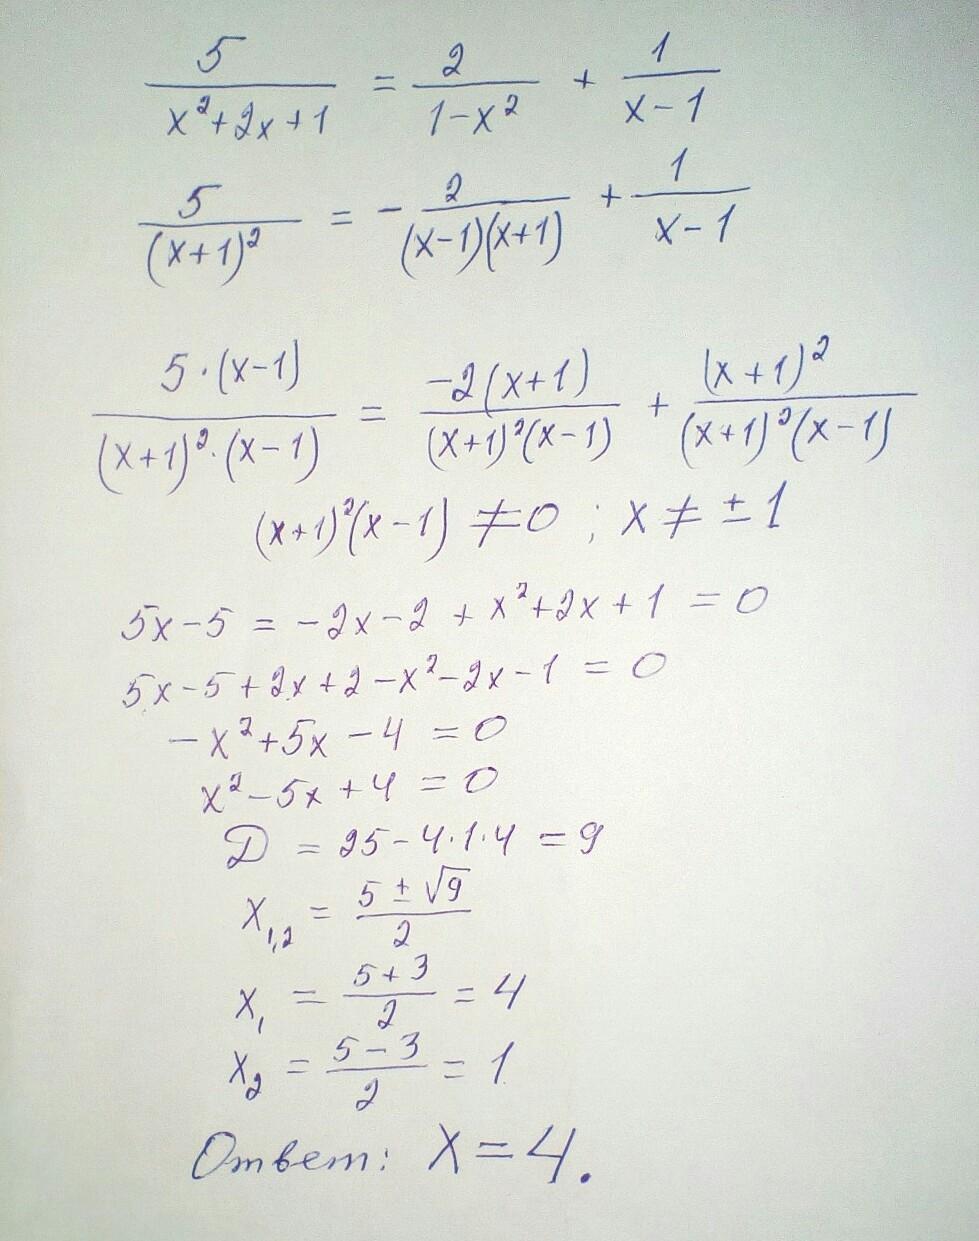 5/(x²+2x+1) = 2/(1-x²) + 1/(x-1)
5/(x+1)² = - 2/((x-1)(x+1)) + 1/(x-1)
5·(x-1)/((x+1)²·(x-1)) = -2(x+1)/((x+1)²(x-1)) + (x+1)²/((x+1)²(x-1))
(x+1)²(x-1) ≠ 0 ; x ≠ ±1
5x-5 = -2x-2 + x²+2x+1 = 0
5x-5+2x+2-x²-2x-1 = 0
-x²+5x-4 = 0
x²-5x+4 = 0
Д = 25-4·1·4 = 9
x₁,₂ = (5±√9)/2
x₁ = (5+3)/2 = 4
x₂ = (5-3)/2 = 1
Ответ: x=4.